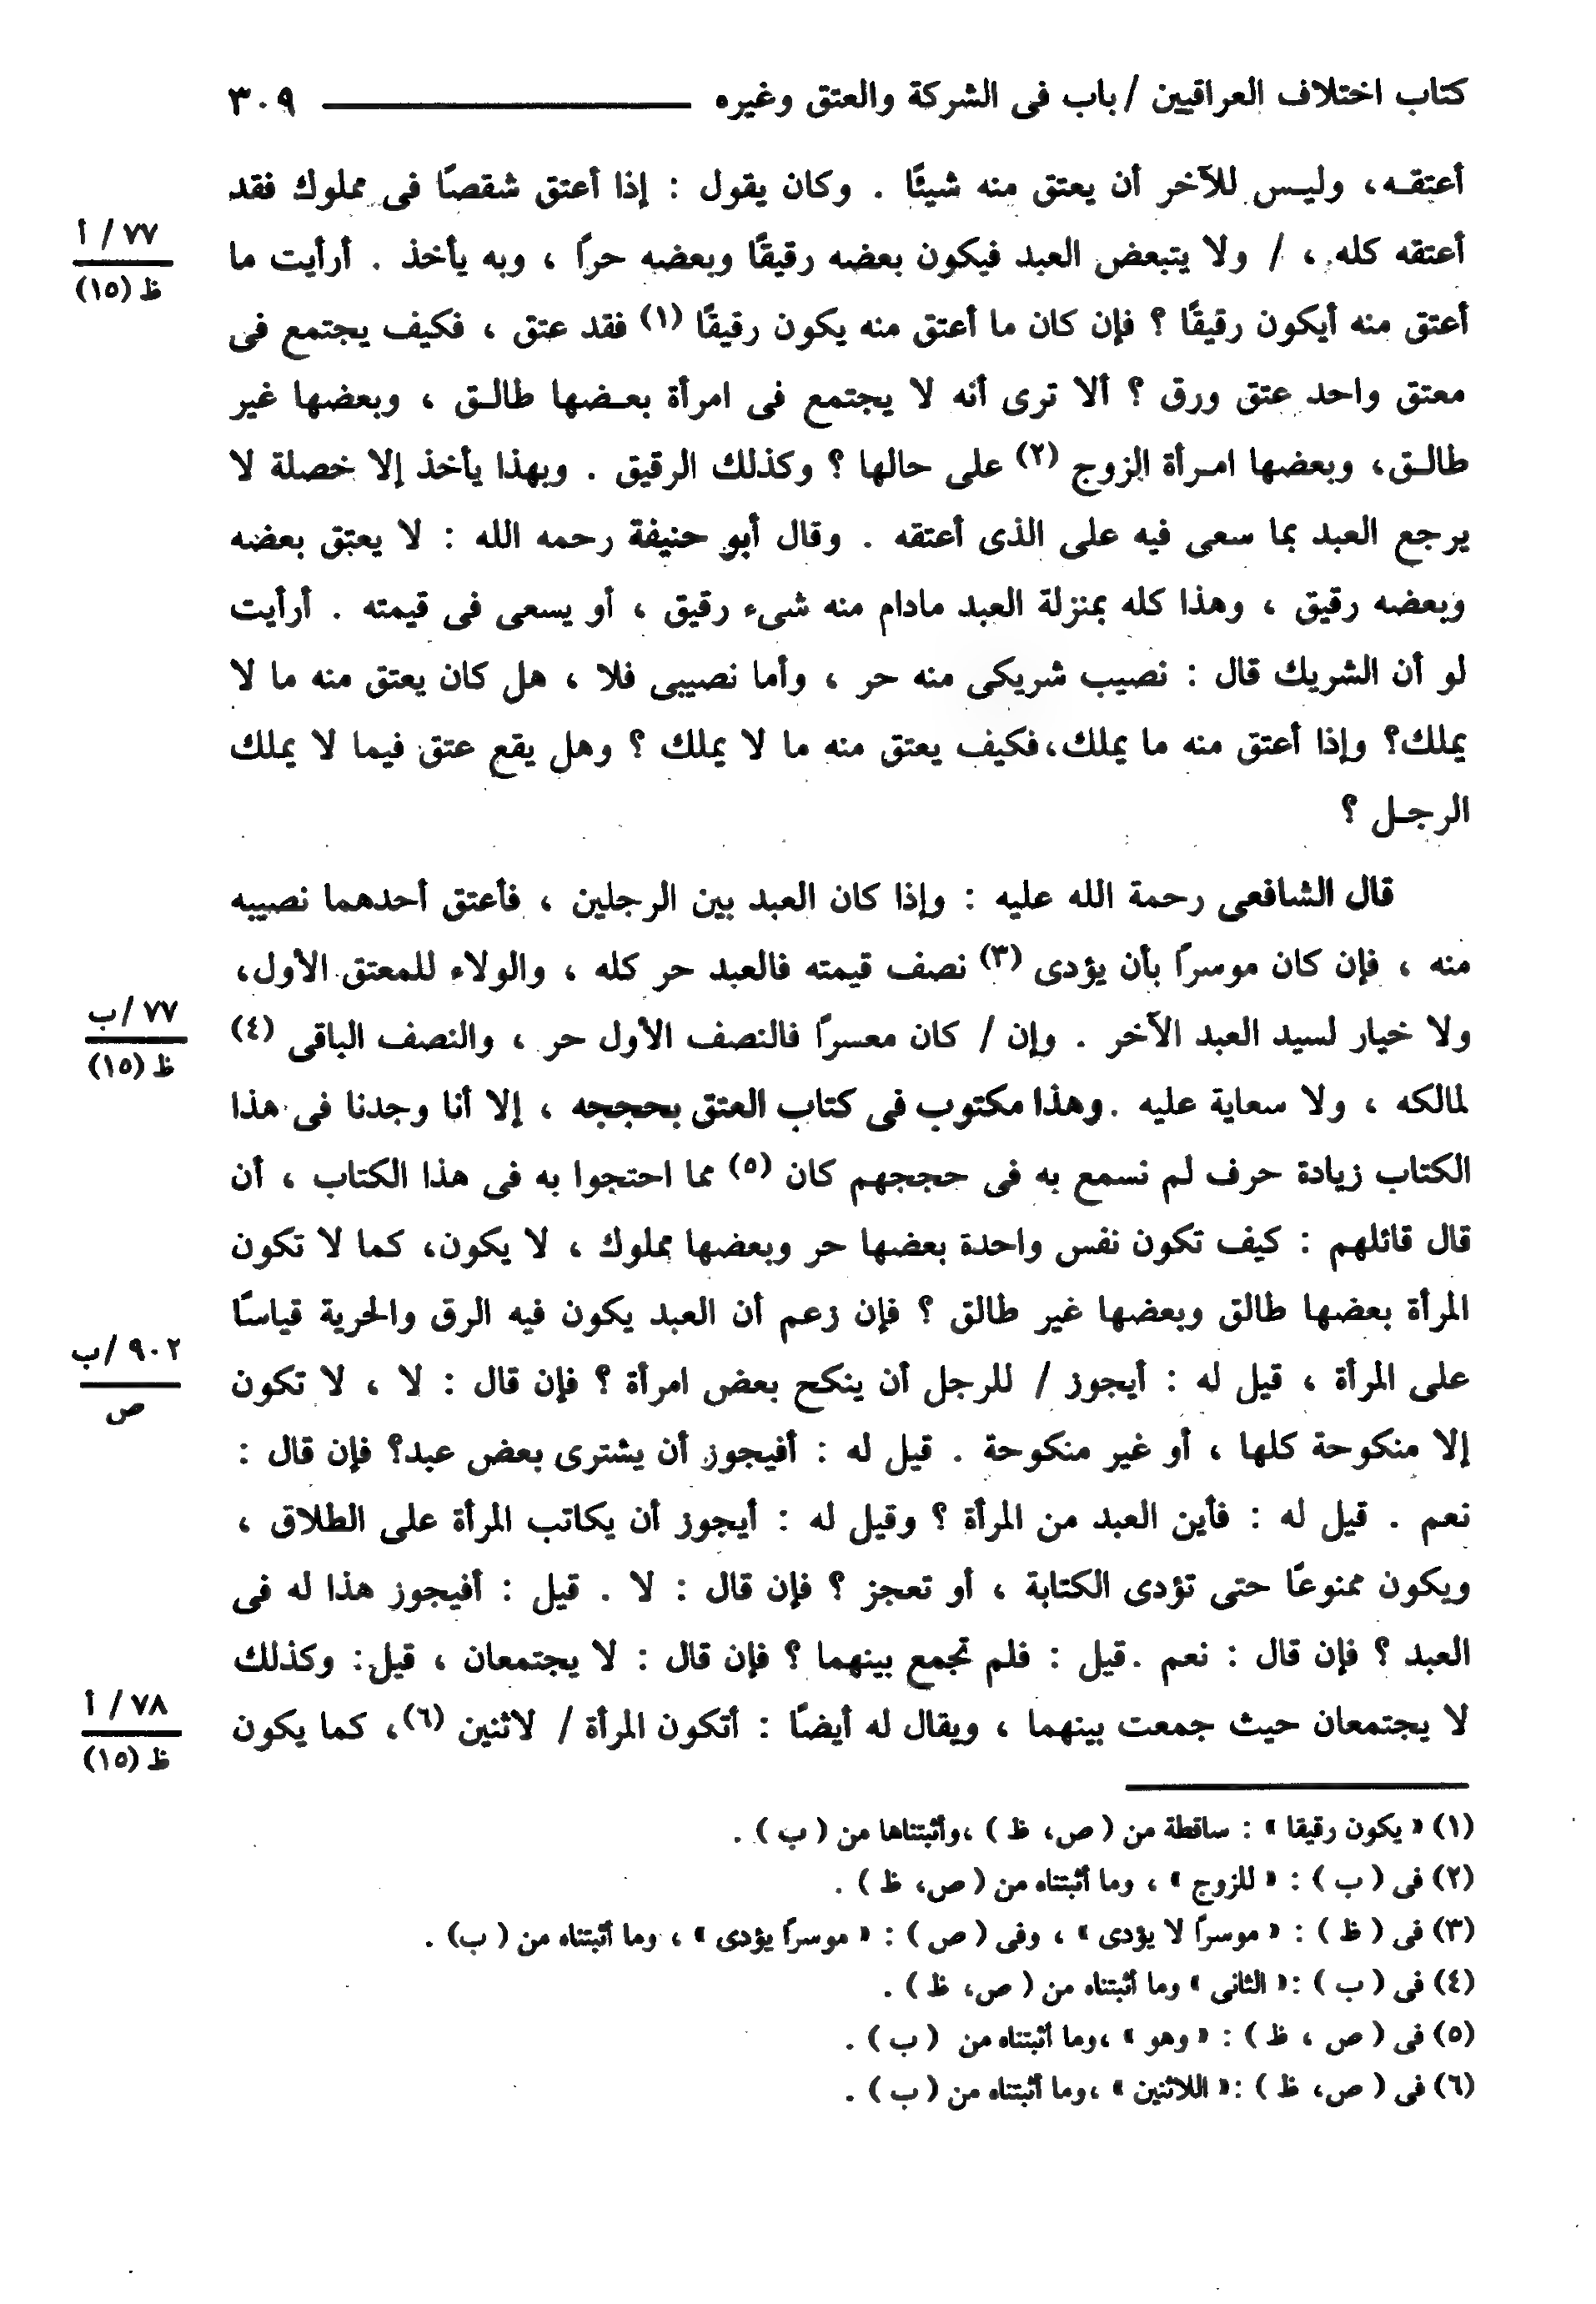 كتاب اختلاف العراقيين / باب فى الشركة والعتق وغيره ٣٠٩
أعتقـه، وليـس للآخر أن يعتق منه شيئًا . وكان يقول : إذا أعتق شقصًا فى مملوك فقد
أعتقه كله ، / ولا يتبعض العبد فيكون بعضه رقيقًا وبعضه حراً ، وبه يأخذ . أرأيت ما
٧٧/ أ
ظ (١٥)
أعتق منه أيكون رقيقًا ؟ فإن كان ما أعتق منه يكون رقيقًا (١) فقد عتق ، فكيف يجتمع فى
معتق واحد عتق ورق ؟ ألا ترى أنه لا يجتمع فى امرأة بعـضها طالـق ، وبعضها غير
طالـق، وبعضها امـرأة الزوج (٢) على حالها ؟ وكذلك الرقيق . وبهذا يأخذ إلا خصلة لا
يرجع العبد بما سعى فيه على الذى أعتقه . وقال أبو حنيفة رحمه الله : لا يعتق بعضه
وبعضه رقيق ، وهذا كله بمنزلة العبد مادام منه شىء رقيق ، أو يسعى فى قيمته . أرأيت
لو أن الشريك قال : نصيب شريكى منه حر ، وأما نصيبى فلا ، هل كان يعتق منه ما لا
يملك؟ وإذا أعتق منه ما يملك،فكيف يعتق منه ما لا يملك ؟ وهل يقع عتق فيما لا يملك
الرجـل ؟
قال الشافعى رحمة الله عليه : وإذا كان العبد بين الرجلين ، فأعتق أحدهما نصيبه
منه ، فإن كان موسراً بأن يؤدى (٣) نصف قيمته فالعبد حر كله ، والولاء للمعتق الأول،
ولا خيار لسيد العبد الآخر . وإن / كان معسرًا فالنصف الأول حر ، والنصف الباقى (٤)
٧٧/ب
ظ (١٥)
لمالكه ، ولا سعاية عليه .وهذا مكتوب فى كتاب العتق بحججه ، إلا أنا وجدنا فى هذا
الكتاب زيادة حرف لم نسمع به فى حججهم كان (٥) مما احتجوا به فى هذا الكتاب ، أن
قال قائلهم : كيف تكون نفس واحدة بعضها حر وبعضها مملوك ، لا يكون، كما لا تكون
المرأة بعضها طالق وبعضها غير طالق ؟ فإن زعم أن العبد يكون فيه الرق والحرية قياسًا
على المرأة ، قيل له : أيجوز / للرجل أن ينكح بعض امرأة ؟ فإن قال : لا ، لا تكون
٩٠٢/ب
ص
إلا منكوحة كلها ، أو غير منكوحة . قيل له : أفيجوز أن يشترى بعض عبد؟ فإن قال :
نعم . قيل له : فأين العبد من المرأة ؟ وقيل له : أيجوز أن يكاتب المرأة على الطلاق ،
ويكون ممنوعًا حتى تؤدى الكتابة ، أو تعجز ؟ فإن قال : لا . قيل : أفيجوز هذا له فى
العبد ؟ فإن قال : نعم .قيل : فلم تجمع بينهما ؟ فإن قال : لا يجتمعان ، قيل: وكذلك
لا يجتمعان حيث جمعت بينهما ، ويقال له أيضًا : أتكون المرأة / لاثنين (٦)، كما يكون
٧٨/ أ
ظ (١٥)
(١) « يكون رقيقا » : ساقطة من ( ص، ظ ) ،وأثبتناها من ( ب ) .
(٢) فى ( ب ) : « للزوج » ، وما أثبتناه من ( ص، ظ ) .
(٣) فى ( ظ ) : « موسراً لا يؤدى » ، وفى ( ص ) : « موسراً يؤدى » ، وما أثبتناه من ( ب) .
(٤) فى ( ب ) :« الثانى » وما أثبتناه من ( ص، ظ ) .
(٥) فى ( ص ، ظ ) : « وهو » ،وما أثبتناه من ( ب ) .
(٦) فى ( ص، ظ ) :« اللاثنين » ،وما أثبتناه من ( ب ) .